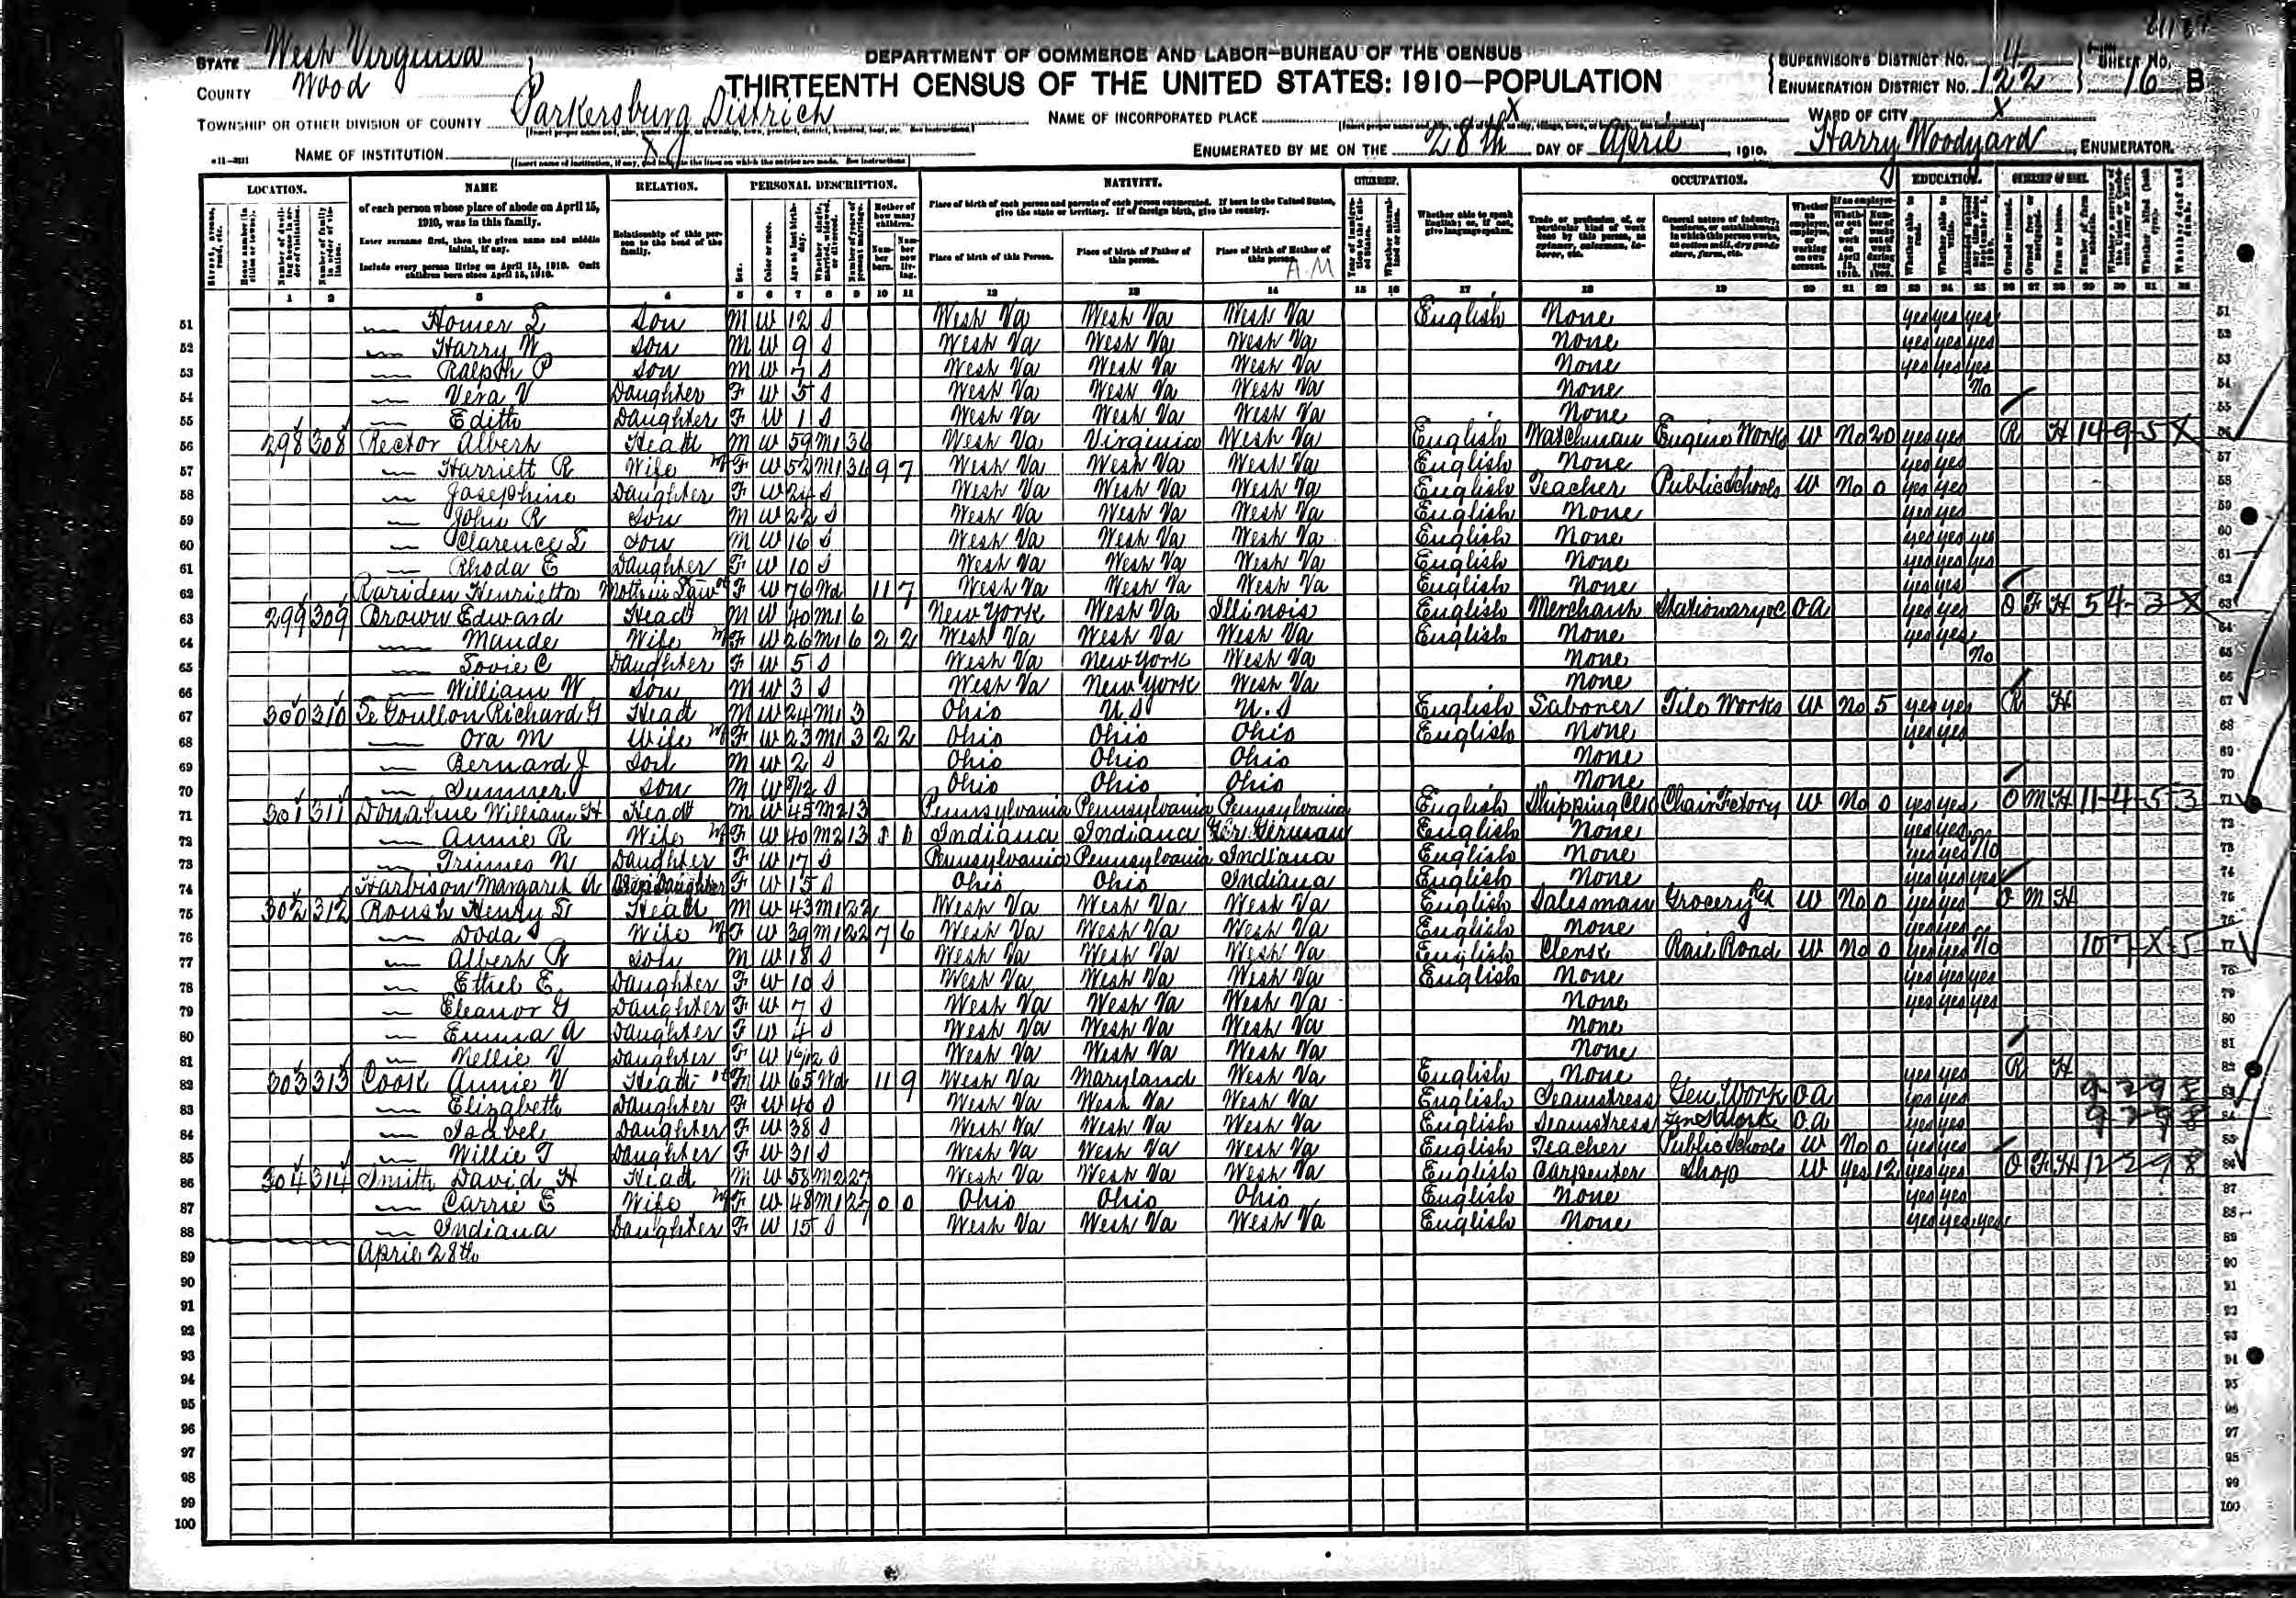 STATE West Virginia
COUNTY Wood
DEPARTMENT OF COMMERCE AND LABOR—BUREAU OF THE CENSUS
THIRTEENTH CENSUS OF THE UNITED STATES: 1910—POPULATION
SUPERVISOR'S DISTRICT NO. 4
ENUMERATION DISTRICT NO. 122
SHEET NO. 16 B
TOWNSHIP OR OTHER DIVISION OF COUNTY Parkersburg District
NAME OF INCORPORATED PLACE X
WARD OF CITY X
NAME OF INSTITUTION X
ENUMERATED BY ME ON THE 28th DAY OF April, 1910. Harry Woodyard, ENUMERATOR.
LOCATION. NAME RELATION. PERSONAL DESCRIPTION. NATIVITY. CITIZENSHIP. OCCUPATION. EDUCATION. OWNERSHIP OF HOME.
of each person whose place of abode on April 15, 1910, was in this family.
Enter surname first, then the given name and middle initial, if any.
Include every person living on April 15, 1910. Omit children born since April 15, 1910.
Relationship of this person to the head of the family.
Place of birth of each person and parents of each person enumerated. If born in the United States, give the state or territory. If of foreign birth, give the country.
Place of birth of this Person. Place of birth of Father of this person. Place of birth of Mother of this person.
Whether able to speak English; or, if not, give language spoken.
51 Homer L Son M W 12 S West Va West Va West Va English None yes yes yes
52 Harry W Son M W 9 S West Va West Va West Va None yes yes yes
53 Ralph P Son M W 7 S West Va West Va West Va None yes yes yes
54 Vera V Daughter F W 5 S West Va West Va West Va None No
55 Edith Daughter F W 1 S West Va West Va West Va None
56 298 308 Rector Albert Head M W 59 M1 36 West Va Virginia West Va English Watchman Engine Works W No 20 yes yes R H 14-9-5 X
57 Harriett R Wife F W 52 M1 36 9 7 West Va West Va West Va English None yes yes
58 Josephine Daughter F W 24 S West Va West Va West Va English Teacher Public Schools W No 0 yes yes
59 John R Son M W 22 S West Va West Va West Va English None yes yes
60 Clarence L Son M W 16 S West Va West Va West Va English None yes yes yes
61 Rhoda E Daughter F W 10 S West Va West Va West Va English None yes yes yes
62 Rariden Henrietta Mother in Law F W 76 Wd 11 7 West Va West Va West Va English None yes yes
63 299 309 Brown Edward Head M W 40 M1 6 New York West Va Illinois English Merchant Stationary OA yes yes O F H 54-3-X
64 Maude Wife F W 26 M1 6 2 2 West Va West Va West Va English None yes yes
65 Daughter F W 5 S West Va New York West Va None No
66 William W Son M W 3 S West Va New York West Va None
67 300 310 Le Goullon Richard G Head M W 24 M1 3 Ohio U.S U.S English Laborer Tile Works W No 5 yes yes R H
68 Ora M Wife F W 23 M1 3 2 2 Ohio Ohio Ohio English None yes yes
69 Bernard J Son M W 2 S Ohio Ohio Ohio None
70 Sumner Son M W 8/12 S Ohio Ohio Ohio None
71 301 311 Donahue William H Head M W 45 M2 13 Pennsylvania Pennsylvania Pennsylvania English Shipping Clk Chair Factory W No 0 yes yes O M H 11-4-5-3
72 Annie R Wife F W 40 M2 13 Indiana Indiana Ger. German English None yes yes
73 Daughter F W 17 S Pennsylvania Pennsylvania Indiana English None yes yes No
74 Harbison Margaret A Step Daughter F W 15 S Ohio Ohio Indiana English None yes yes yes
75 302 312 Roush Henry L Head M W 43 M1 22 West Va West Va West Va English Salesman Grocery W No 0 yes yes O M H
76 Doda Wife F W 39 M1 22 7 6 West Va West Va West Va English None yes yes
77 Albert R Son M W 18 S West Va West Va West Va English Clerk Rail Road W No 0 yes yes No 10 7-X-5
78 Ethel E Daughter F W 10 S West Va West Va West Va English None yes yes yes
79 Eleanor G Daughter F W 7 S West Va West Va West Va None yes yes yes
80 Emma A Daughter F W 4 S West Va West Va West Va None
81 Nellie V Daughter F W S West Va West Va West Va None
82 303 313 Cook Annie V Head F W 65 Wd 11 9 West Va Maryland West Va English None yes yes R H
83 Elizabeth Daughter F W 40 S West Va West Va West Va English Seamstress Gen Work OA yes yes
84 Isabel Daughter F W 38 S West Va West Va West Va English Seamstress Gen Work OA yes yes
85 Willie T Daughter F W 31 S West Va West Va West Va English Teacher Public Schools W No 0 yes yes
86 304 314 Smith David H Head M W 58 M2 27 West Va West Va West Va English Carpenter Shop W yes 12 yes yes O F H 12-2-9 8
87 Carrie E Wife F W 48 M1 27 0 0 Ohio Ohio Ohio English None yes yes
88 Indiana Daughter F W 15 S West Va West Va West Va English None yes yes yes
89 April 28th
90
91
92
93
94
95
96
97
98
99
100